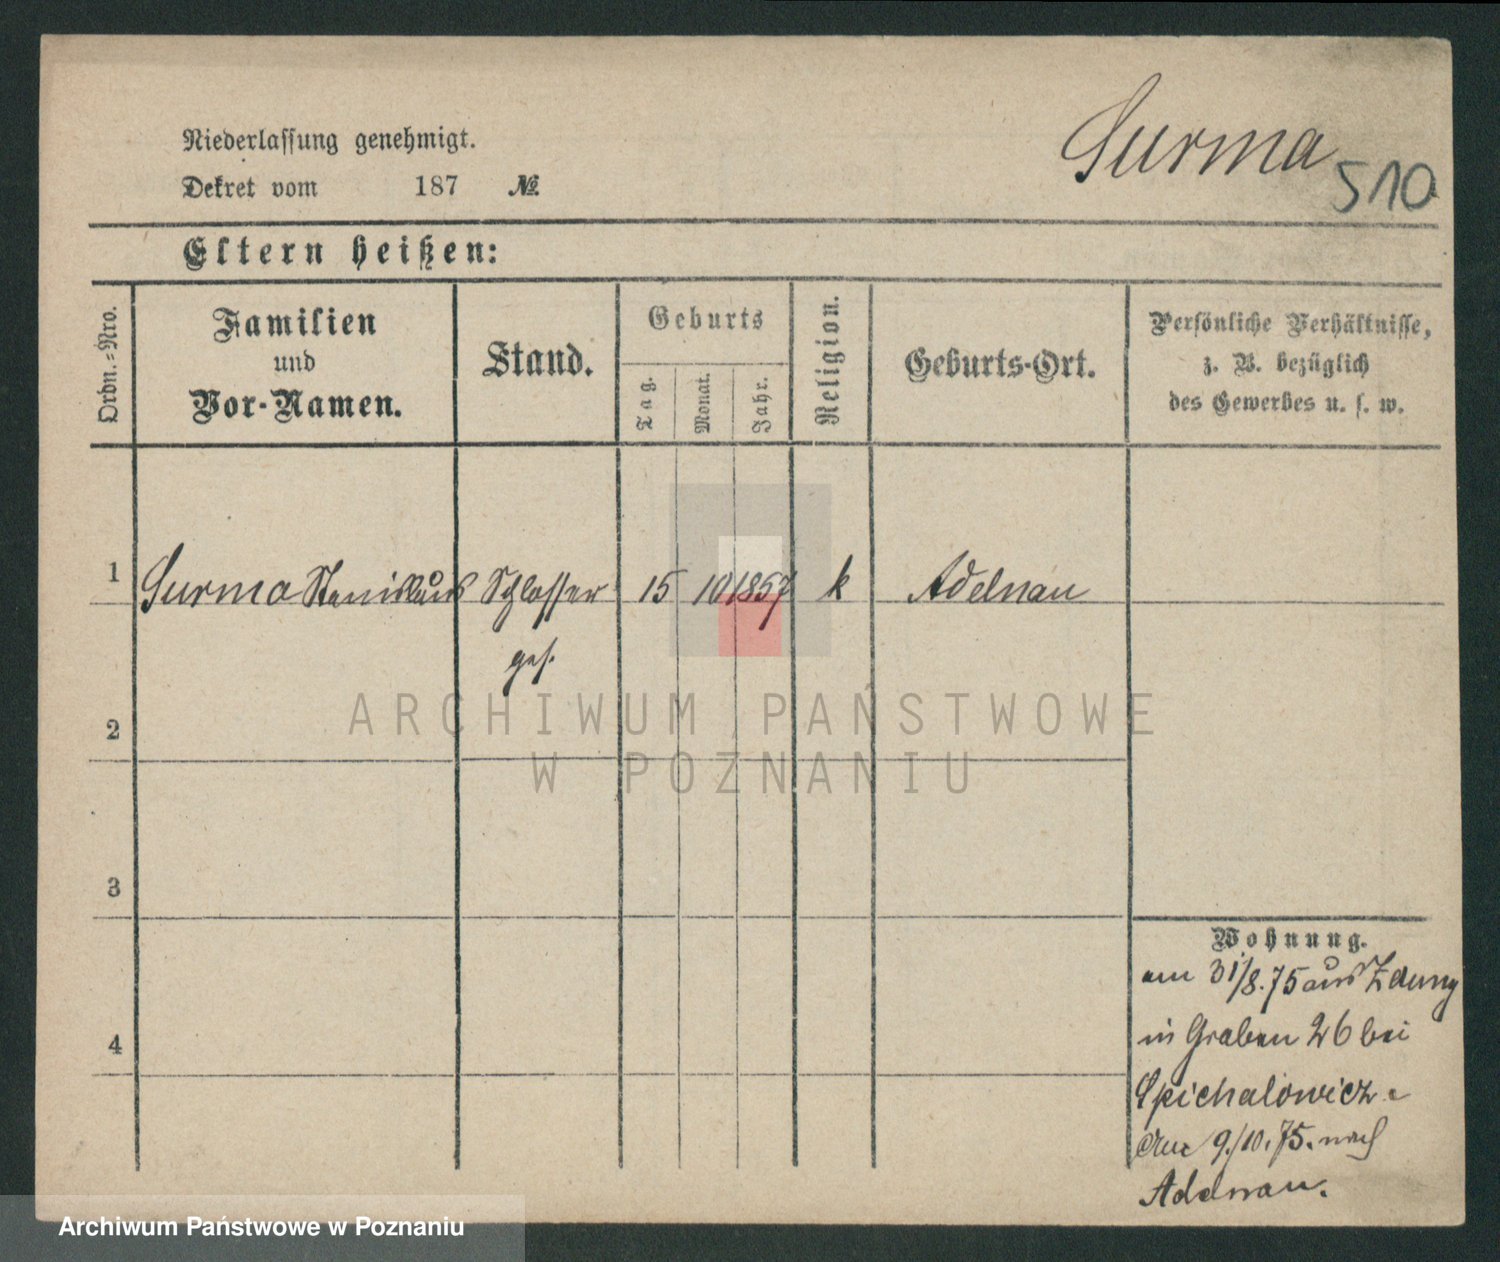 Surma
510
Niederlassung genehmigt.
Dekret vom 187 №
Eltern heißen:
Ordn.-Nro.
Familien und Vor-Namen.
Stand.
Geburts
Tag.
Monat.
Jahr.
Religion.
Geburts-Ort.
Persönliche Verhältnisse,
z. B. bezüglich
des Gewerbes u. s. w.
1 Surma Stanislaus Schlosser 15 10 1857 k Adelnau
ges.
2
3
4
Wohnung.
am 31/8.75 aus Zduny
in Graben 26 bei
Spichalowicz
Am 9./10.75. nach
Adelnau.
ARCHIWUM PAŃSTWOWE
W POZNANIU
Archiwum Państwowe w Poznaniu